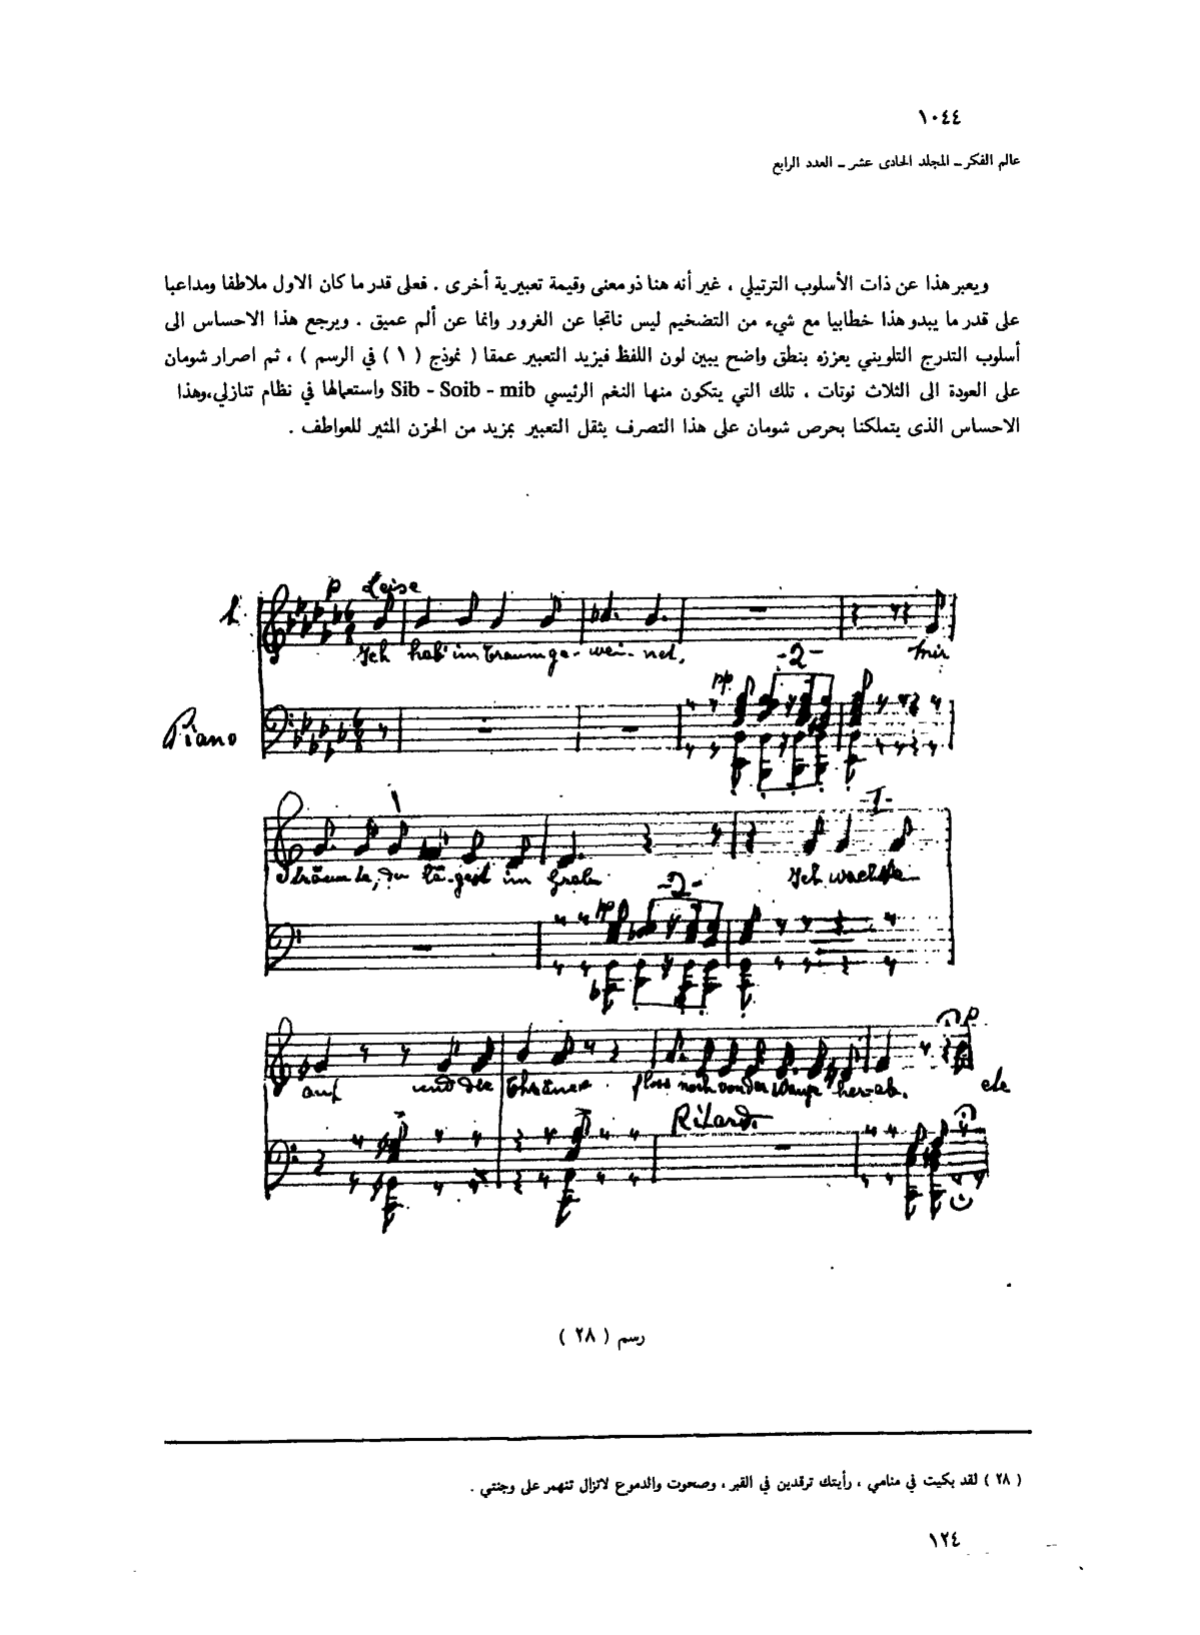 ١٠٤٤
عالم الفكر ـ المجلد الحادى عشر ـ العدد الرابع
ويعبر هذا عن ذات الأسلوب الترتيلي ، غير أنه هنا ذو معنى وقيمة تعبيرية أخرى . فعلى قدر ما كان الاول ملاطفا ومداعبا
على قدر ما يبدو هذا خطابيا مع شيء من التضخيم ليس ناتجا عن الغرور وانما عن ألم عميق . ويرجع هذا الاحساس الى
أسلوب التدرج التلويني يعززه بنطق واضح يبين لون اللفظ فيزيد التعبير عمقا ( نموذج ( ١ ) في الرسم ) ، ثم اصرار شومان
على العودة الى الثلاث نوتات ، تلك التي يتكون منها النغم الرئيسي Sib - Soib - mib واستعمالها في نظام تنازلي،وهذا
الاحساس الذى يتملكنا بحرص شومان على هذا التصرف يثقل التعبير بمزيد من الحزن المثير للعواطف .
p Leise
Ich hab' im traum ge- wei- net.
mir
-2-
pp
Piano
-1-
träumte, du lä-gest im Grab
Ich wachte
-2-
pp
p
auf und die thräne floss noch von der Wange her-ab.
etc
Ritard.
رسم ( ٢٨ )
( ٢٨ ) لقد بكيت في منامي ، رأيتك ترقدين في القبر ، وصحوت والدموع لاتزال تنهمر على وجنتي .
١٢٤